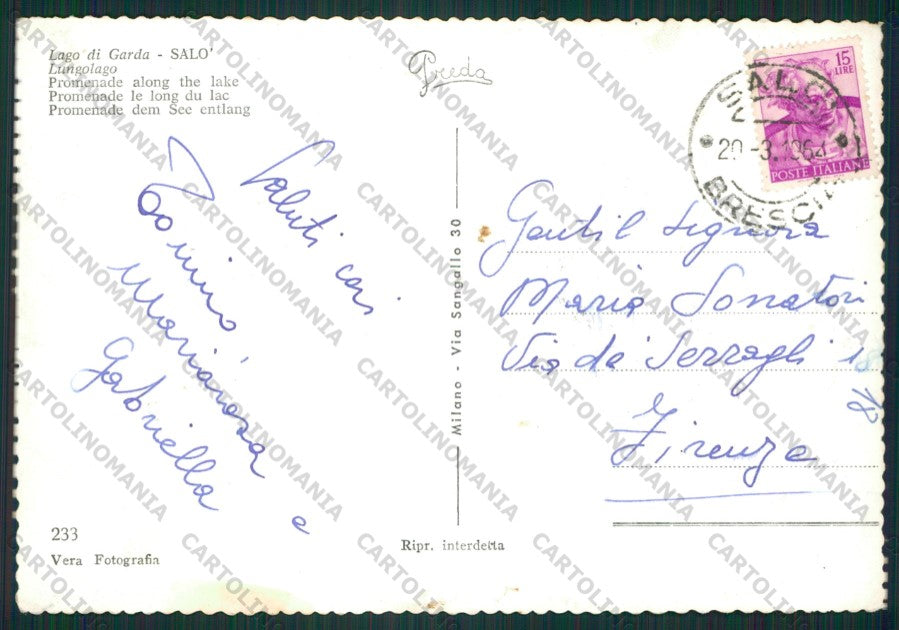 Lago di Garda - SALO'
Lungolago
Promenade along the lake
Promenade le long du lac
Promenade dem See entlang
Preda
15
LIRE
POSTE ITALIANE
SALO'
20-3.1964
BRESCIA
Saluti cari
Tonino
Mariarosa e
Gabriella
Milano - Via Sangallo 30
Gentil Signora
Maria Sonatori
Via de' Serragli 18
18
Firenze
233
Vera Fotografia
Ripr. interdetta
CARTOLINOMANIA